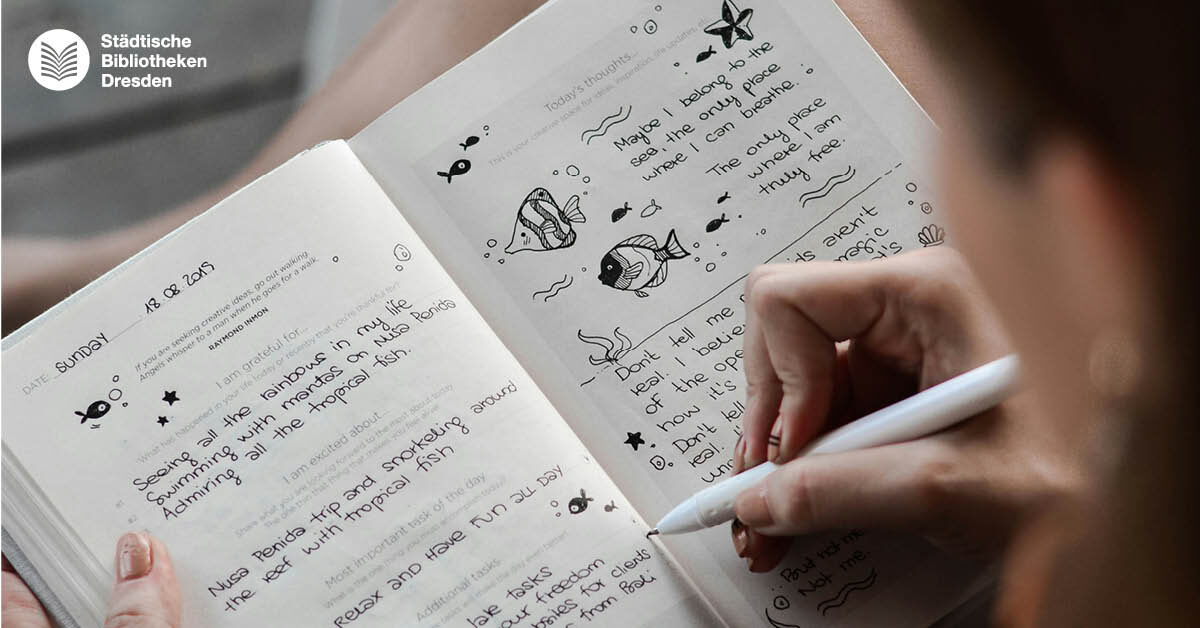 Städtische
Bibliotheken
Dresden
DATE: SUNDAY 18.08.2019
If you are seeking creative ideas, go out walking.
Angels whisper to a man when he goes for a walk.
RAYMOND INMON
I am grateful for...
What has happened in your life today or recently that you're thankful for?
#1 Seeing all the rainbows in my life
#2 Swimming with mantas on Nusa Penida
Admiring all the tropical fish.
I am excited about...
Share what you are looking forward to the most about today
The one thing that makes you feel alive
Nusa Penida trip and snorkeling around
the reef with tropical fish
Most important task of the day
What is the one thing you must accomplish today?
RELAX AND HAVE FUN ALL DAY
Additional tasks
will make the day even better!
take tasks
our freedom
sites for clients
from Bali
Today's thoughts...
This is your creative space for ideas, inspiration, life updates,
Maybe I belong to the
sea, the only place
where I can breathe.
The only place
where I am
truly free.
aren't
magic
Don't tell me
real. I believe
of the
how it's
Don't tell
real
But not me.
Not me.